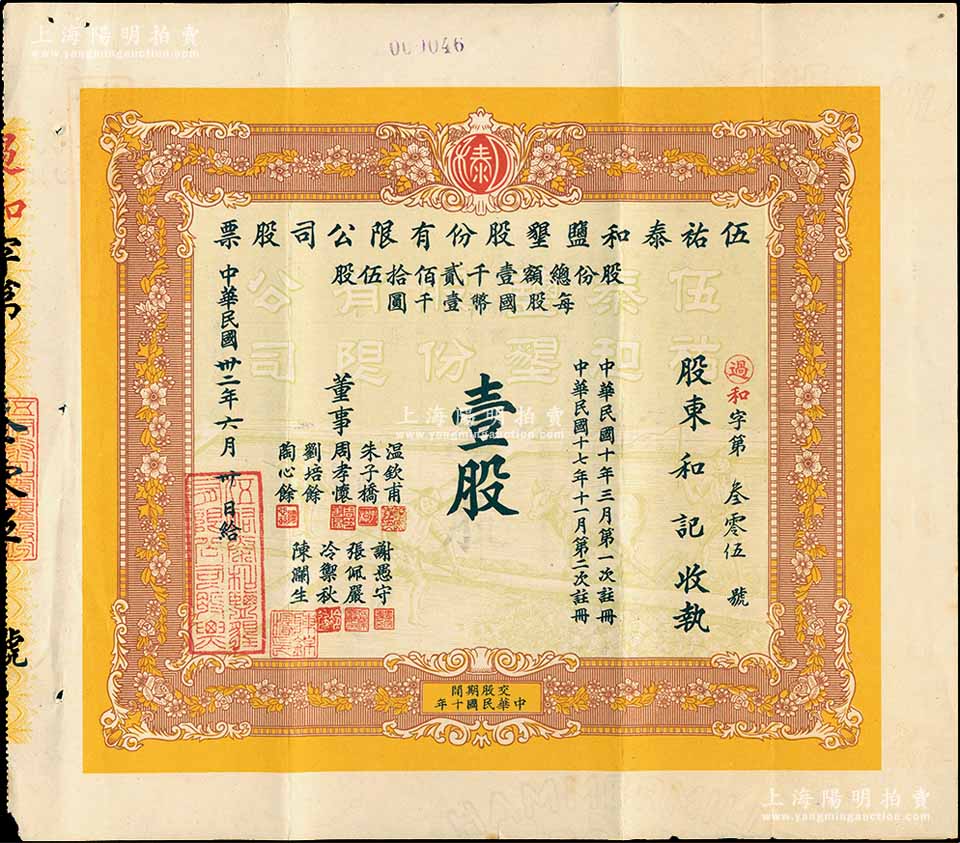 上海陽明拍賣
www.yangmingauction.com
泰
伍祐泰和鹽墾股份有限公司股票
股份總額壹千貳佰拾伍股
每股國幣壹千圓
過和字第 叁零伍 號
股東和記收執
中華民國十年三月第一次註冊
中華民國十七年十一月第二次註冊
壹股
董事
温欽甫
朱子橋
周孝懷
劉培餘
陶心餘
謝愚守
張佩嚴
冷禦秋
陳瀾生
中華民國卅二年六月卅日給
交股期間
中華民國十年
上海陽明拍賣
www.yangmingauction.com
上海陽明拍賣
www.yangmingauction.com